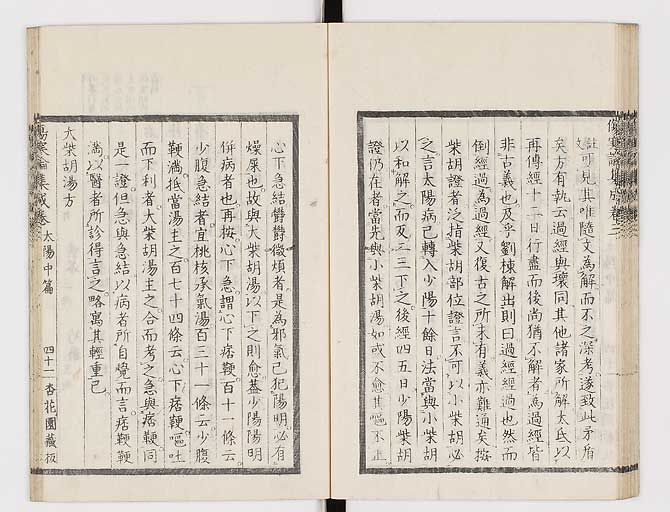 可見其唯隨文為解而不之深考遂致此矛盾
矣方有執云過經與壞同其他諸家所解大氐以
再傳經十二日行盡而後尚猶不解者為過經皆
非古義也及乎劉棟解出則曰過經經過也然而
倒經過為過經又復古之所未有義亦難通矣按
柴胡證者泛指柴胡部位證言不可以小柴胡必
之言太陽病已轉入少陽十餘日法當與小柴胡
以和解之而反二三下之後經四五日少陽柴胡
證仍在者當先與小柴胡湯如或不愈其嘔不止
心下急結鬱鬱微煩者是為邪氣已犯陽明必有
燥屎也故與大柴胡湯以下之則愈蓋少陽陽明
併病者也再按心下急謂心下痞鞕百十一條云
少腹急結者宜桃核承氣湯百三十一條云少腹
鞕滿抵當湯主之百七十四條云心下痞鞕嘔吐
而下利者大柴胡湯主之合而考之急與痞鞕同
是一證但急與急結以病者所自覺而言痞鞕
滿以醫者所診得言之略寓其輕重已
大柴胡湯方
傷寒論集成卷 太陽中篇 四十二 杏花園藏板